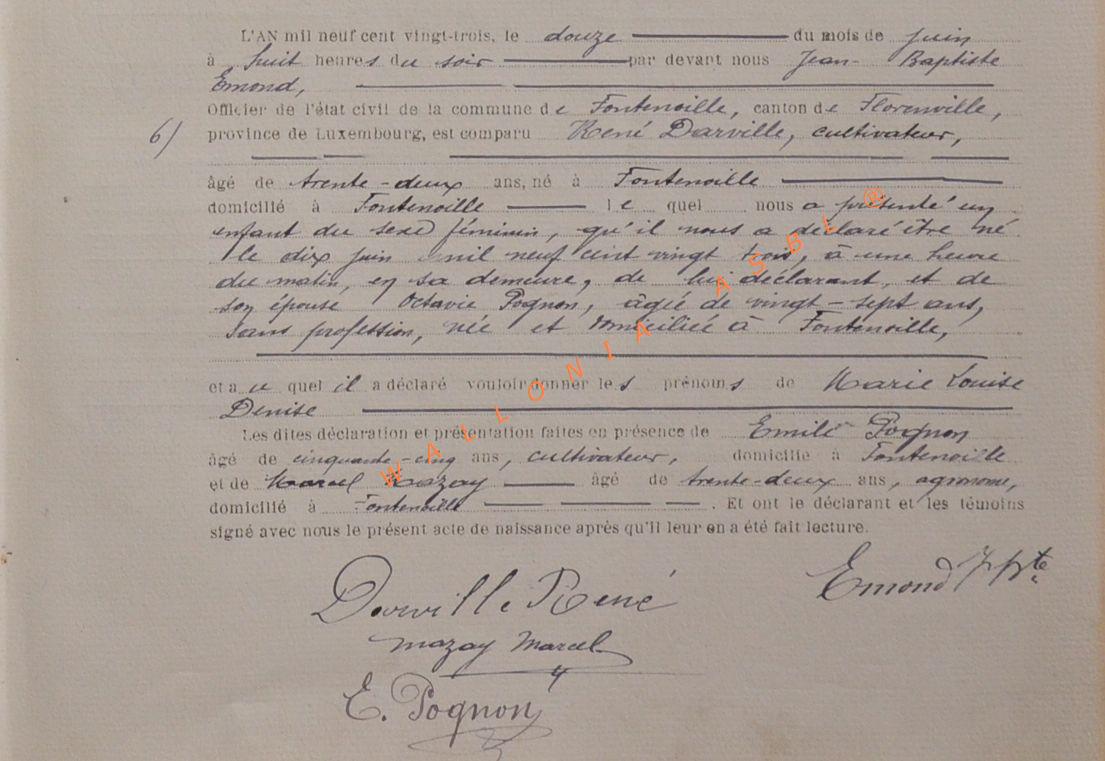 L'AN mil neuf cent vingt-trois, le douze du mois de juin
à huit heures du soir par devant nous Jean-Baptiste
Emond,
Officier de l'état civil de la commune de Fontenoille, canton de Florenville,
6/ province de Luxembourg, est comparu René Darville, cultivateur,
âgé de trente-deux ans, né à Fontenoille
domicilié à Fontenoille lequel nous a présenté un
enfant du sexe féminin, qu'il nous a déclaré être né
le dix juin mil neuf cent vingt trois, à une heure
du matin, en sa demeure, de lui déclarant, et de
son épouse Octavie Pognon, âgée de vingt-sept ans,
sans profession, née et domiciliée à Fontenoille,
et a u quel il a déclaré vouloir donner les prénoms de Marie Louise
Denise
Les dites déclaration et présentation faites en présence de Emile Pognon
âgé de cinquante-cinq ans, cultivateur, domicilié à Fontenoille
et de Marcel Mazay âgé de trente-deux ans, agronome,
domicilié à Fontenoille. Et ont le déclarant et les témoins
signé avec nous le présent acte de naissance après qu'il leur en a été fait lecture.
Darville René
Emond J Bte
Mazay Marcel
E. Pognon
WALLONIA ASBL ®